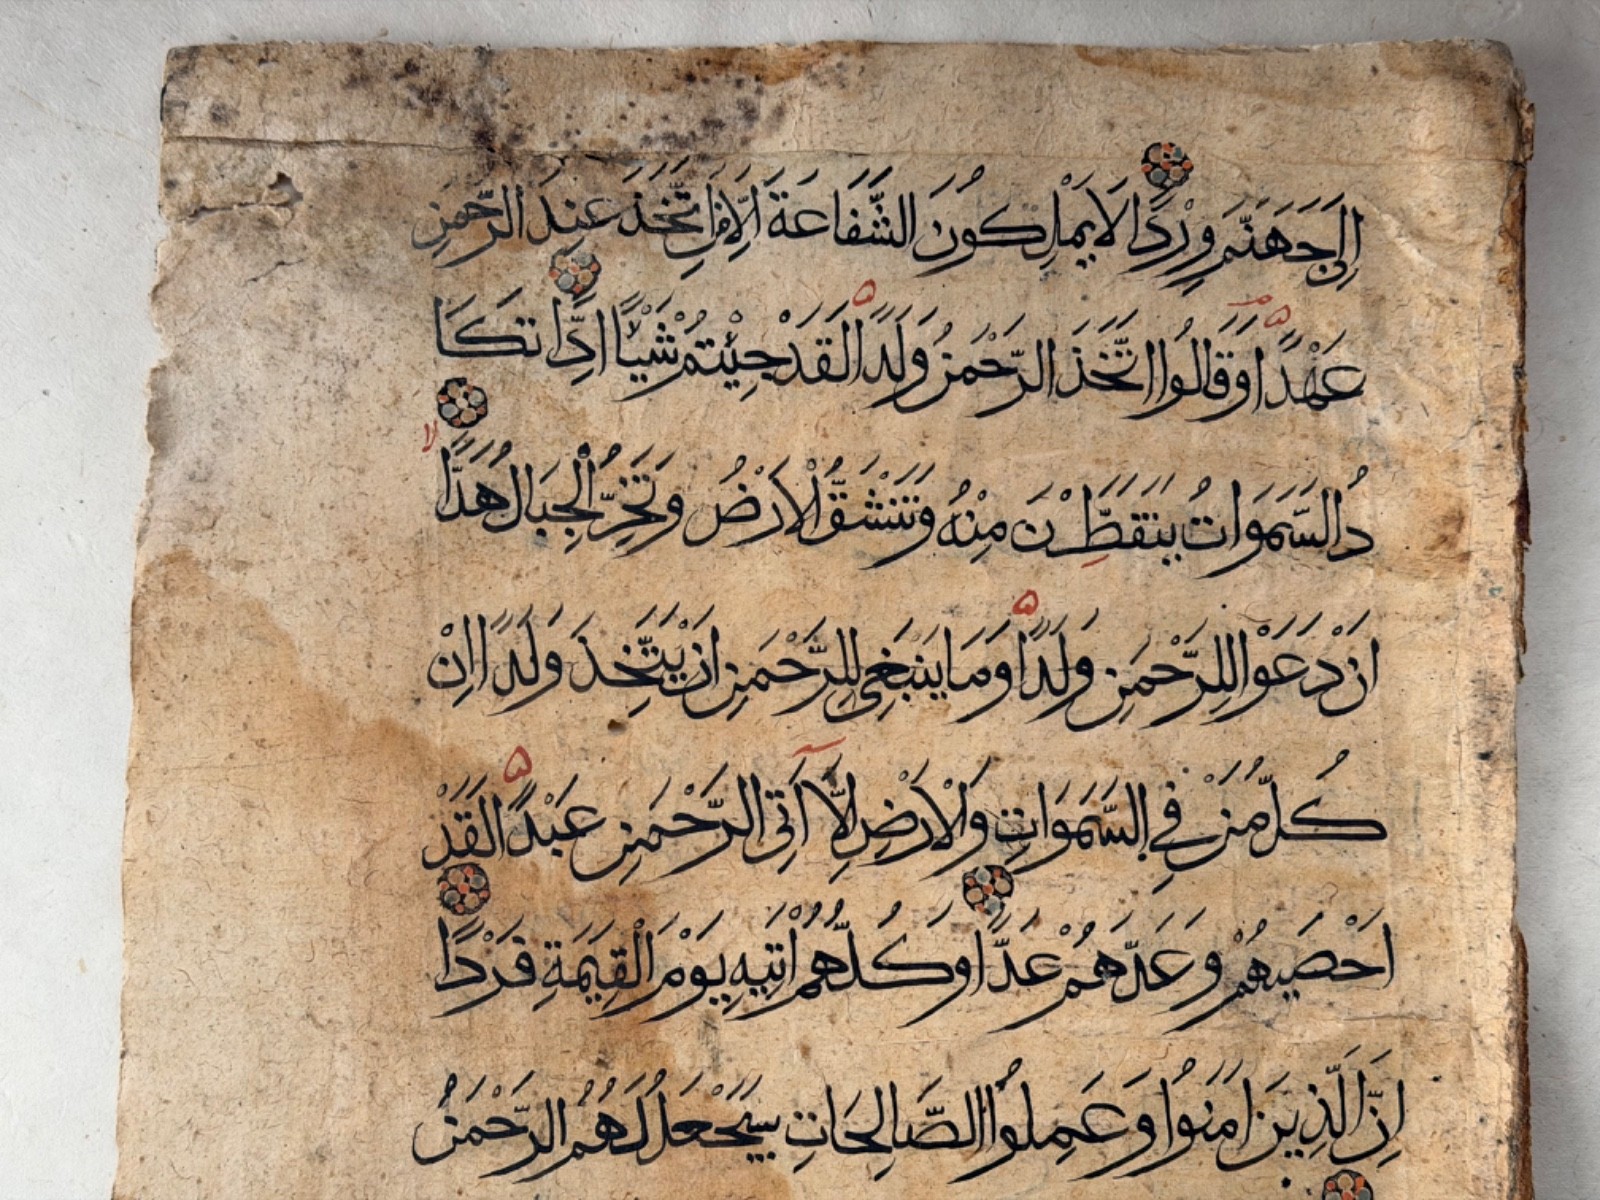 اِلَى جَهَنَّمَ وِرْدًا لَا يَمْلِكُونَ الشَّفَاعَةَ اِلَّا مَنِ اتَّخَذَ عِنْدَ الرَّحْمٰنِ
عَهْدًا وَقَالُوا اتَّخَذَ الرَّحْمٰنُ وَلَدًا لَقَدْ جِئْتُمْ شَيْئًا اِدًّا تَكَا
دُ السَّمَوَاتُ يَتَفَطَّرْنَ مِنْهُ وَتَنْشَقُّ الْاَرْضُ وَتَخِرُّ الْجِبَالُ هَدًّا
اَنْ دَعَوْا لِلرَّحْمَنِ وَلَدًا وَمَا يَنْبَغِي لِلرَّحْمَنِ اَنْ يَتَّخِذَ وَلَدًا اِنْ
كُلُّ مَنْ فِي السَّمَوَاتِ وَالْاَرْضِ اِلَّا آتِى الرَّحْمَنِ عَبْدًا لَقَدْ
اَحْصَيهُمْ وَعَدَّهُمْ عَدًّا وَكُلُّهُمْ اٰتِيهِ يَوْمَ الْقِيَمَةِ فَرْدًا
اِنَّ الَّذِينَ اٰمَنُوا وَعَمِلُوا الصَّالِحَاتِ سَيَجْعَلُ لَهُمُ الرَّحْمَنُ